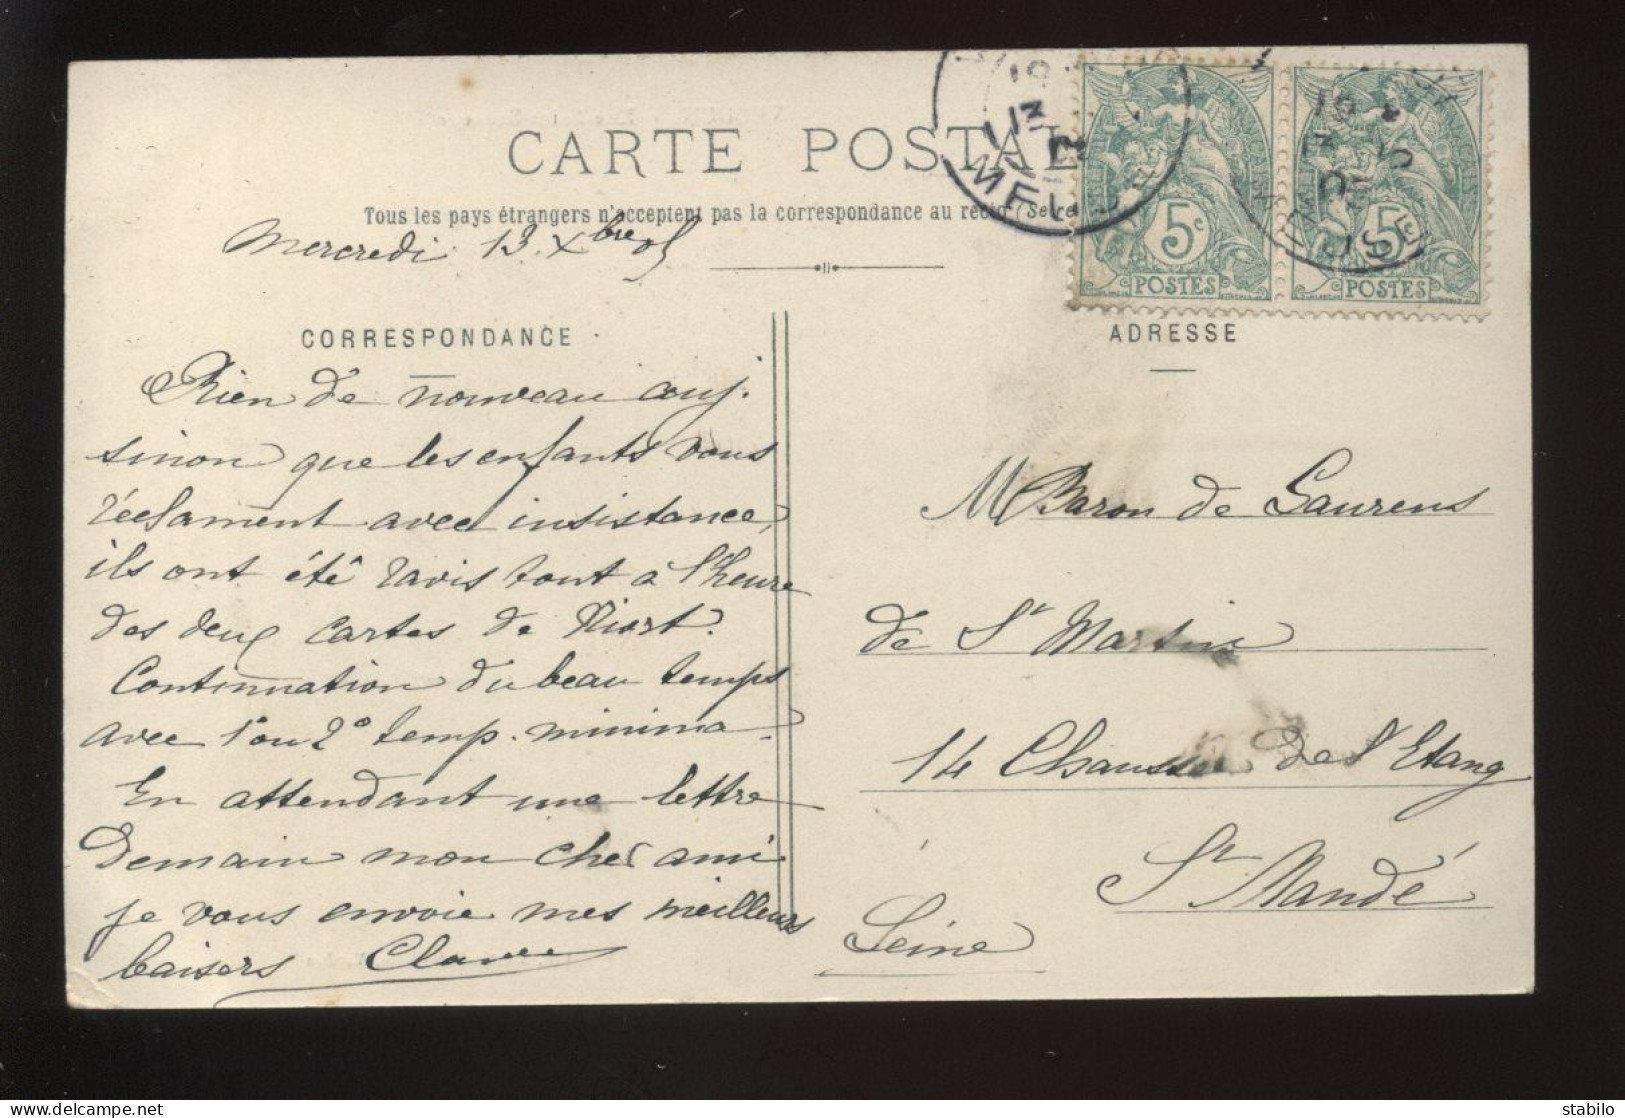 CARTE POSTAL
Tous les pays étrangers n'acceptent pas la correspondance au recto (Se re
Mercredi 13 Xbre 05
CORRESPONDANCE
Rien de nouveau auj.
sinon que les enfants vous
réclament avec insistance,
ils ont été ravis tout à l'heure
des deux cartes de Niort.
Continuation du beau temps
avec 1° ou 2° temp. minima.
En attendant une lettre
demain mon cher ami
je vous envoie mes meilleurs
baisers
5c
POSTES
5c
POSTES
ADRESSE
M Baron de Laurens
de St Martin
14 Chaussée de l'Etang
St Mandé
Seine
stabilo